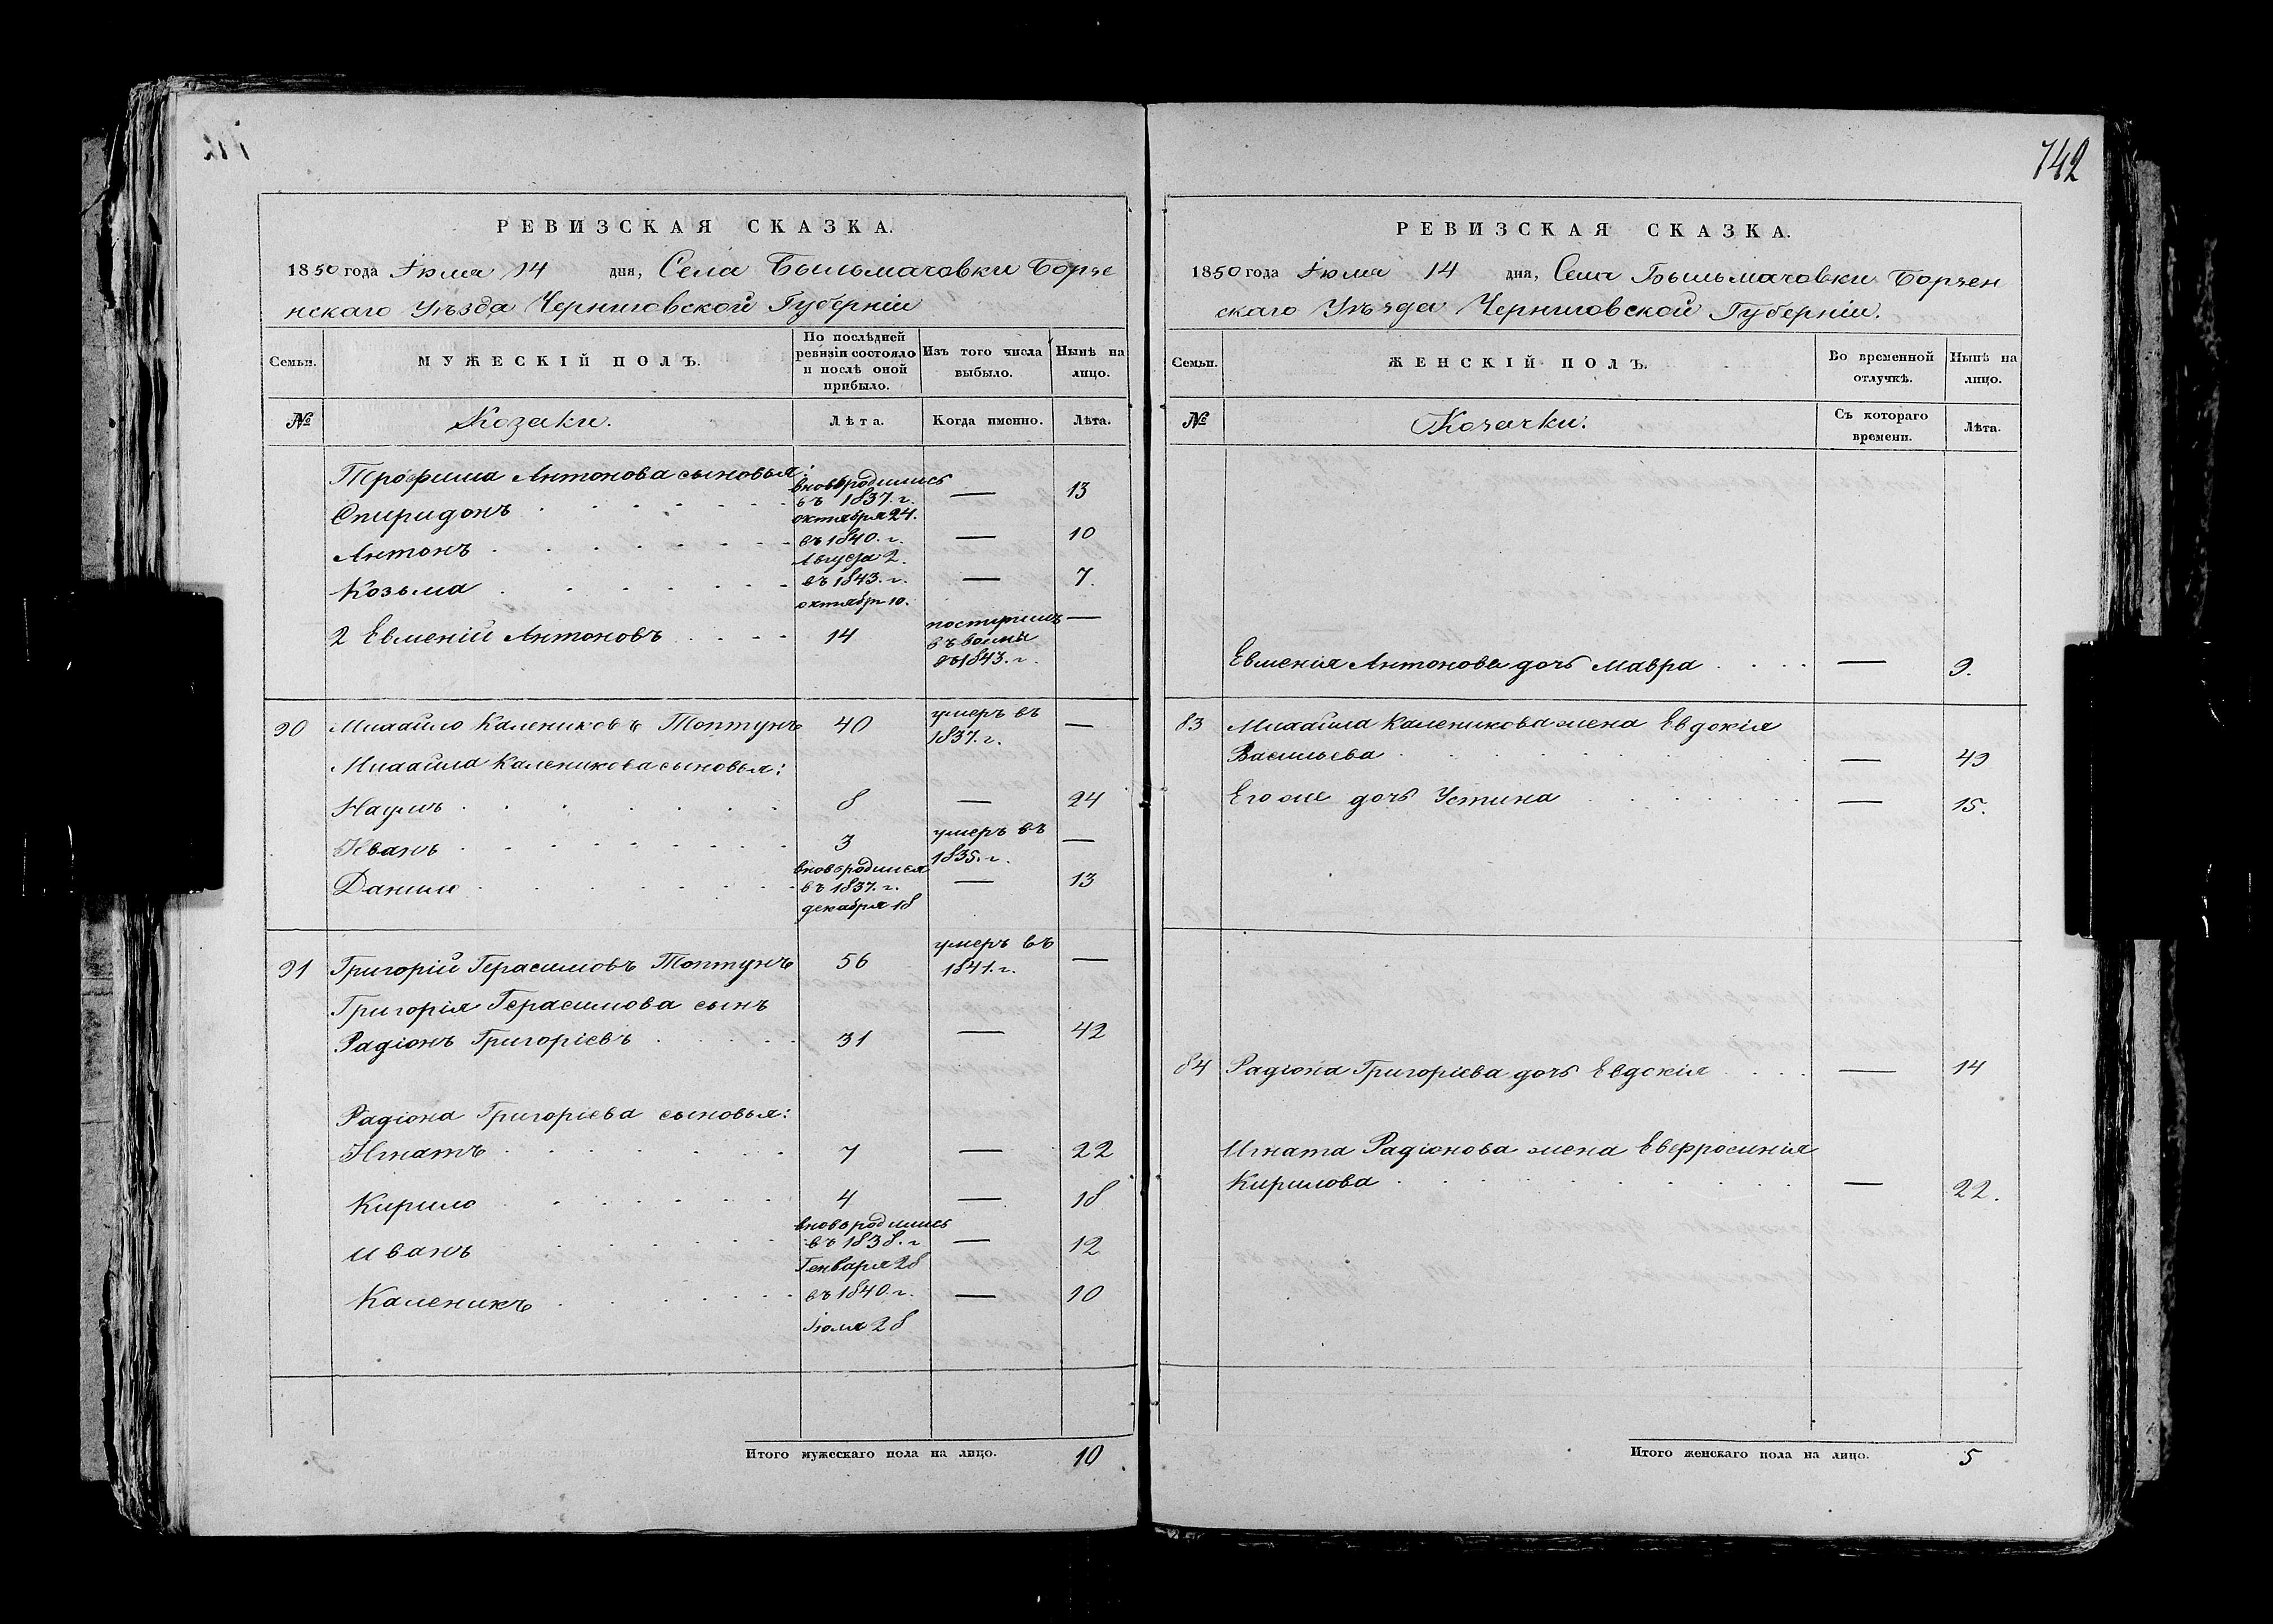 742
РЕВИЗСКАЯ СКАЗКА.
1850 года Іюля 14 дня, Села Бильмачовки Борзе
нскаго Уѣзда Черниговской Губерніи
Семьи. МУЖЕСКІЙ ПОЛЪ. По послѣдней ревизіи состояло и послѣ оной прибыло. Изъ того числа выбыло. Нынѣ на лицо.
№ Козаки. Лѣта. Когда именно. Лѣта.
Трофима Антонова сыновья:
Спиридонъ вновь родились въ 1837. г. октября 24. — 13
Антонъ въ 1840. г. Августа 2. — 10
Козьма въ 1843. г. октября 10. — 7.
2 Евменій Антоновъ 14 поступилъ въ воины въ 1843. г. —
90 Михайло Калениковъ Топтунъ 40 умеръ въ 1837. г. —
Михайла Каленикова сыновья:
Наумъ 8 — 24
Иванъ 3 умеръ въ 1835. г. —
Данило вновь родился въ 1837. г. декабря 18 — 13
91 Григорій Герасимовъ Топтунъ 56 умеръ въ 1841. г. —
Григорія Герасимова сынъ
Радіонъ Григоріевъ 31 — 42
Радіона Григоріева сыновья:
Игнатъ 7 — 22
Кирило 4 — 18
Иванъ вновь родились въ 1838. г. Генваря 28 — 12
Каленикъ въ 1840. г. Іюля 28 — 10
Итого мужескаго пола на лицо. 10
РЕВИЗСКАЯ СКАЗКА.
1850 года Іюля 14 дня, Села Бильмачовки Борзен
скаго Уѣзда Черниговской Губерніи.
Семьи. ЖЕНСКІЙ ПОЛЪ. Во временной отлучкѣ. Нынѣ на лицо.
№ Козачки. Съ котораго времени. Лѣта.
Евменія Антонова дочь Мавра — 9.
83 Михайла Каленикова жена Евдокія
Васильева — 49
Его же дочь Устина — 15.
84 Радіона Григоріева дочь Евдокія — 14
Игната Радіонова жена Евфросинія
Кирилова — 22.
Итого женскаго пола на лицо. 5